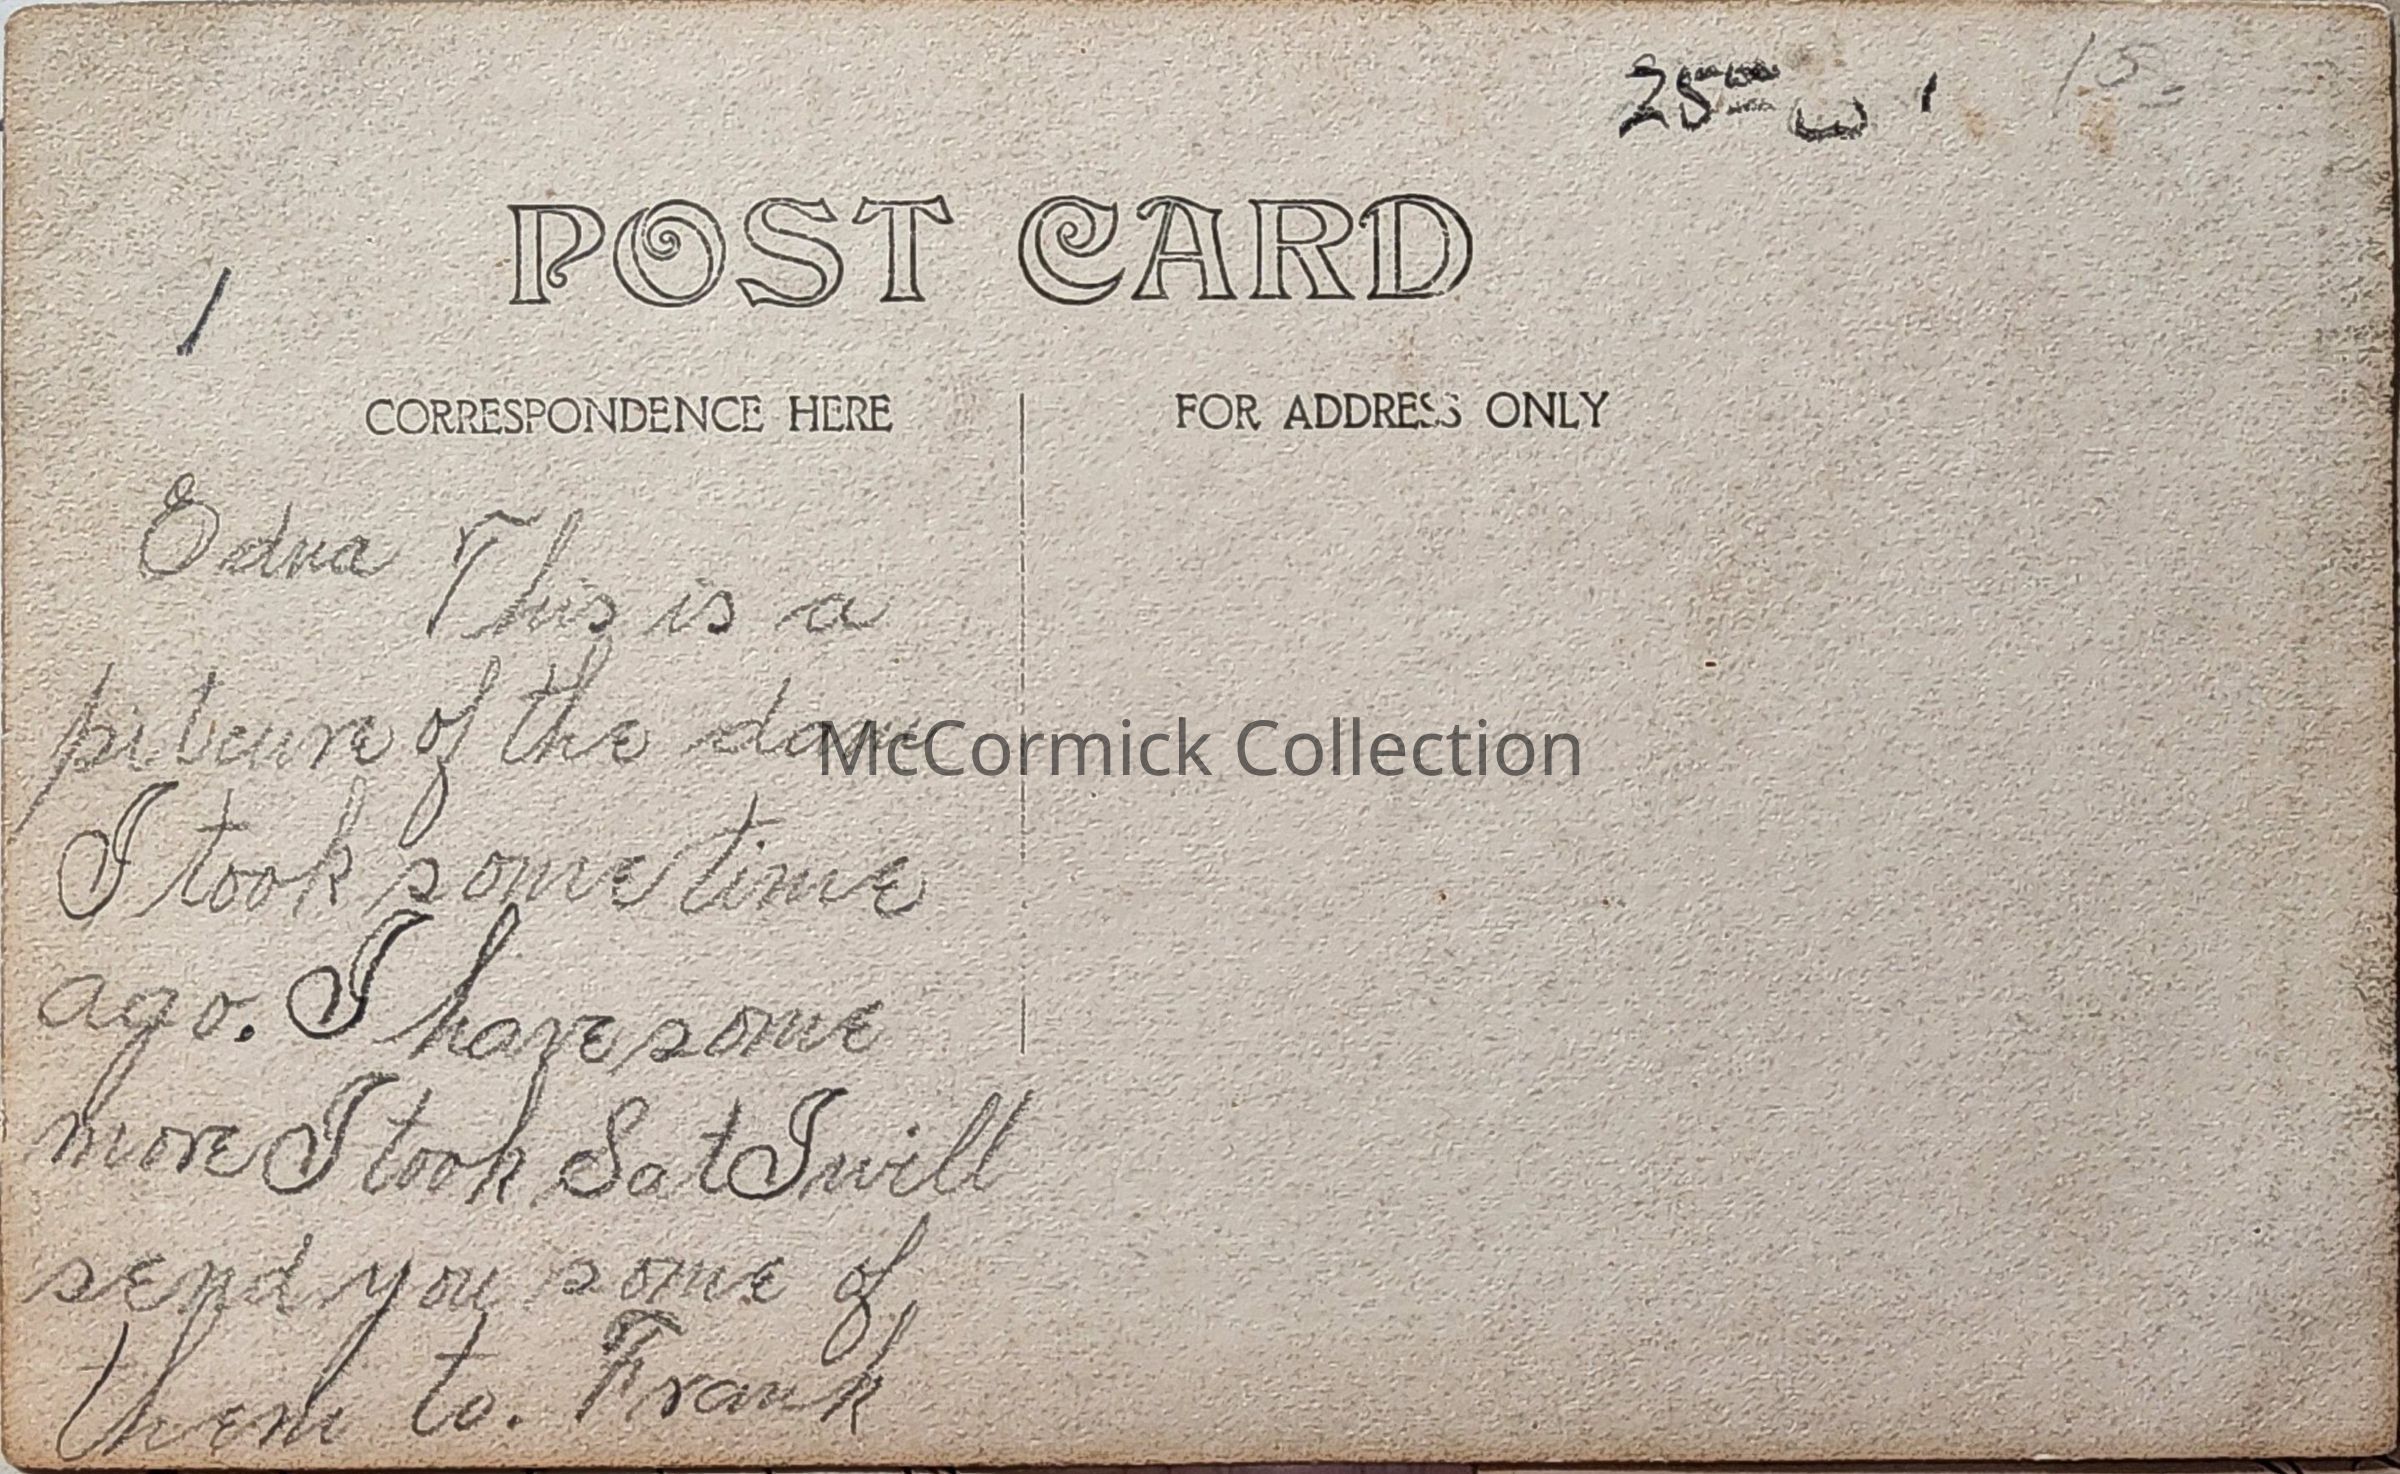 25 15
POST CARD
1
CORRESPONDENCE HERE
FOR ADDRESS ONLY
Edna This is a
picture of the dam
McCormick Collection
I took some time
ago. I have some
more I took Sat I will
send you some of
them to. Frank